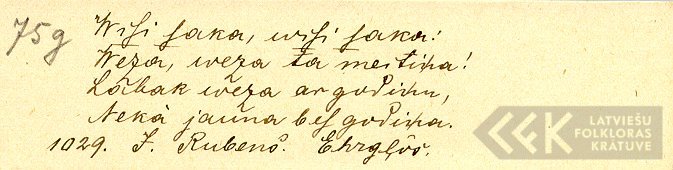 75g
Wiſi ſaka, wiſi ſaka:
Weza, weza ta meitiņa!
Labak weza ar godiņu,
Nekà jauna beſ godiņa.
1029. J. Rubens. Ehrgļôs.
LATVIEŠU
FOLKLORAS
KRĀTUVE